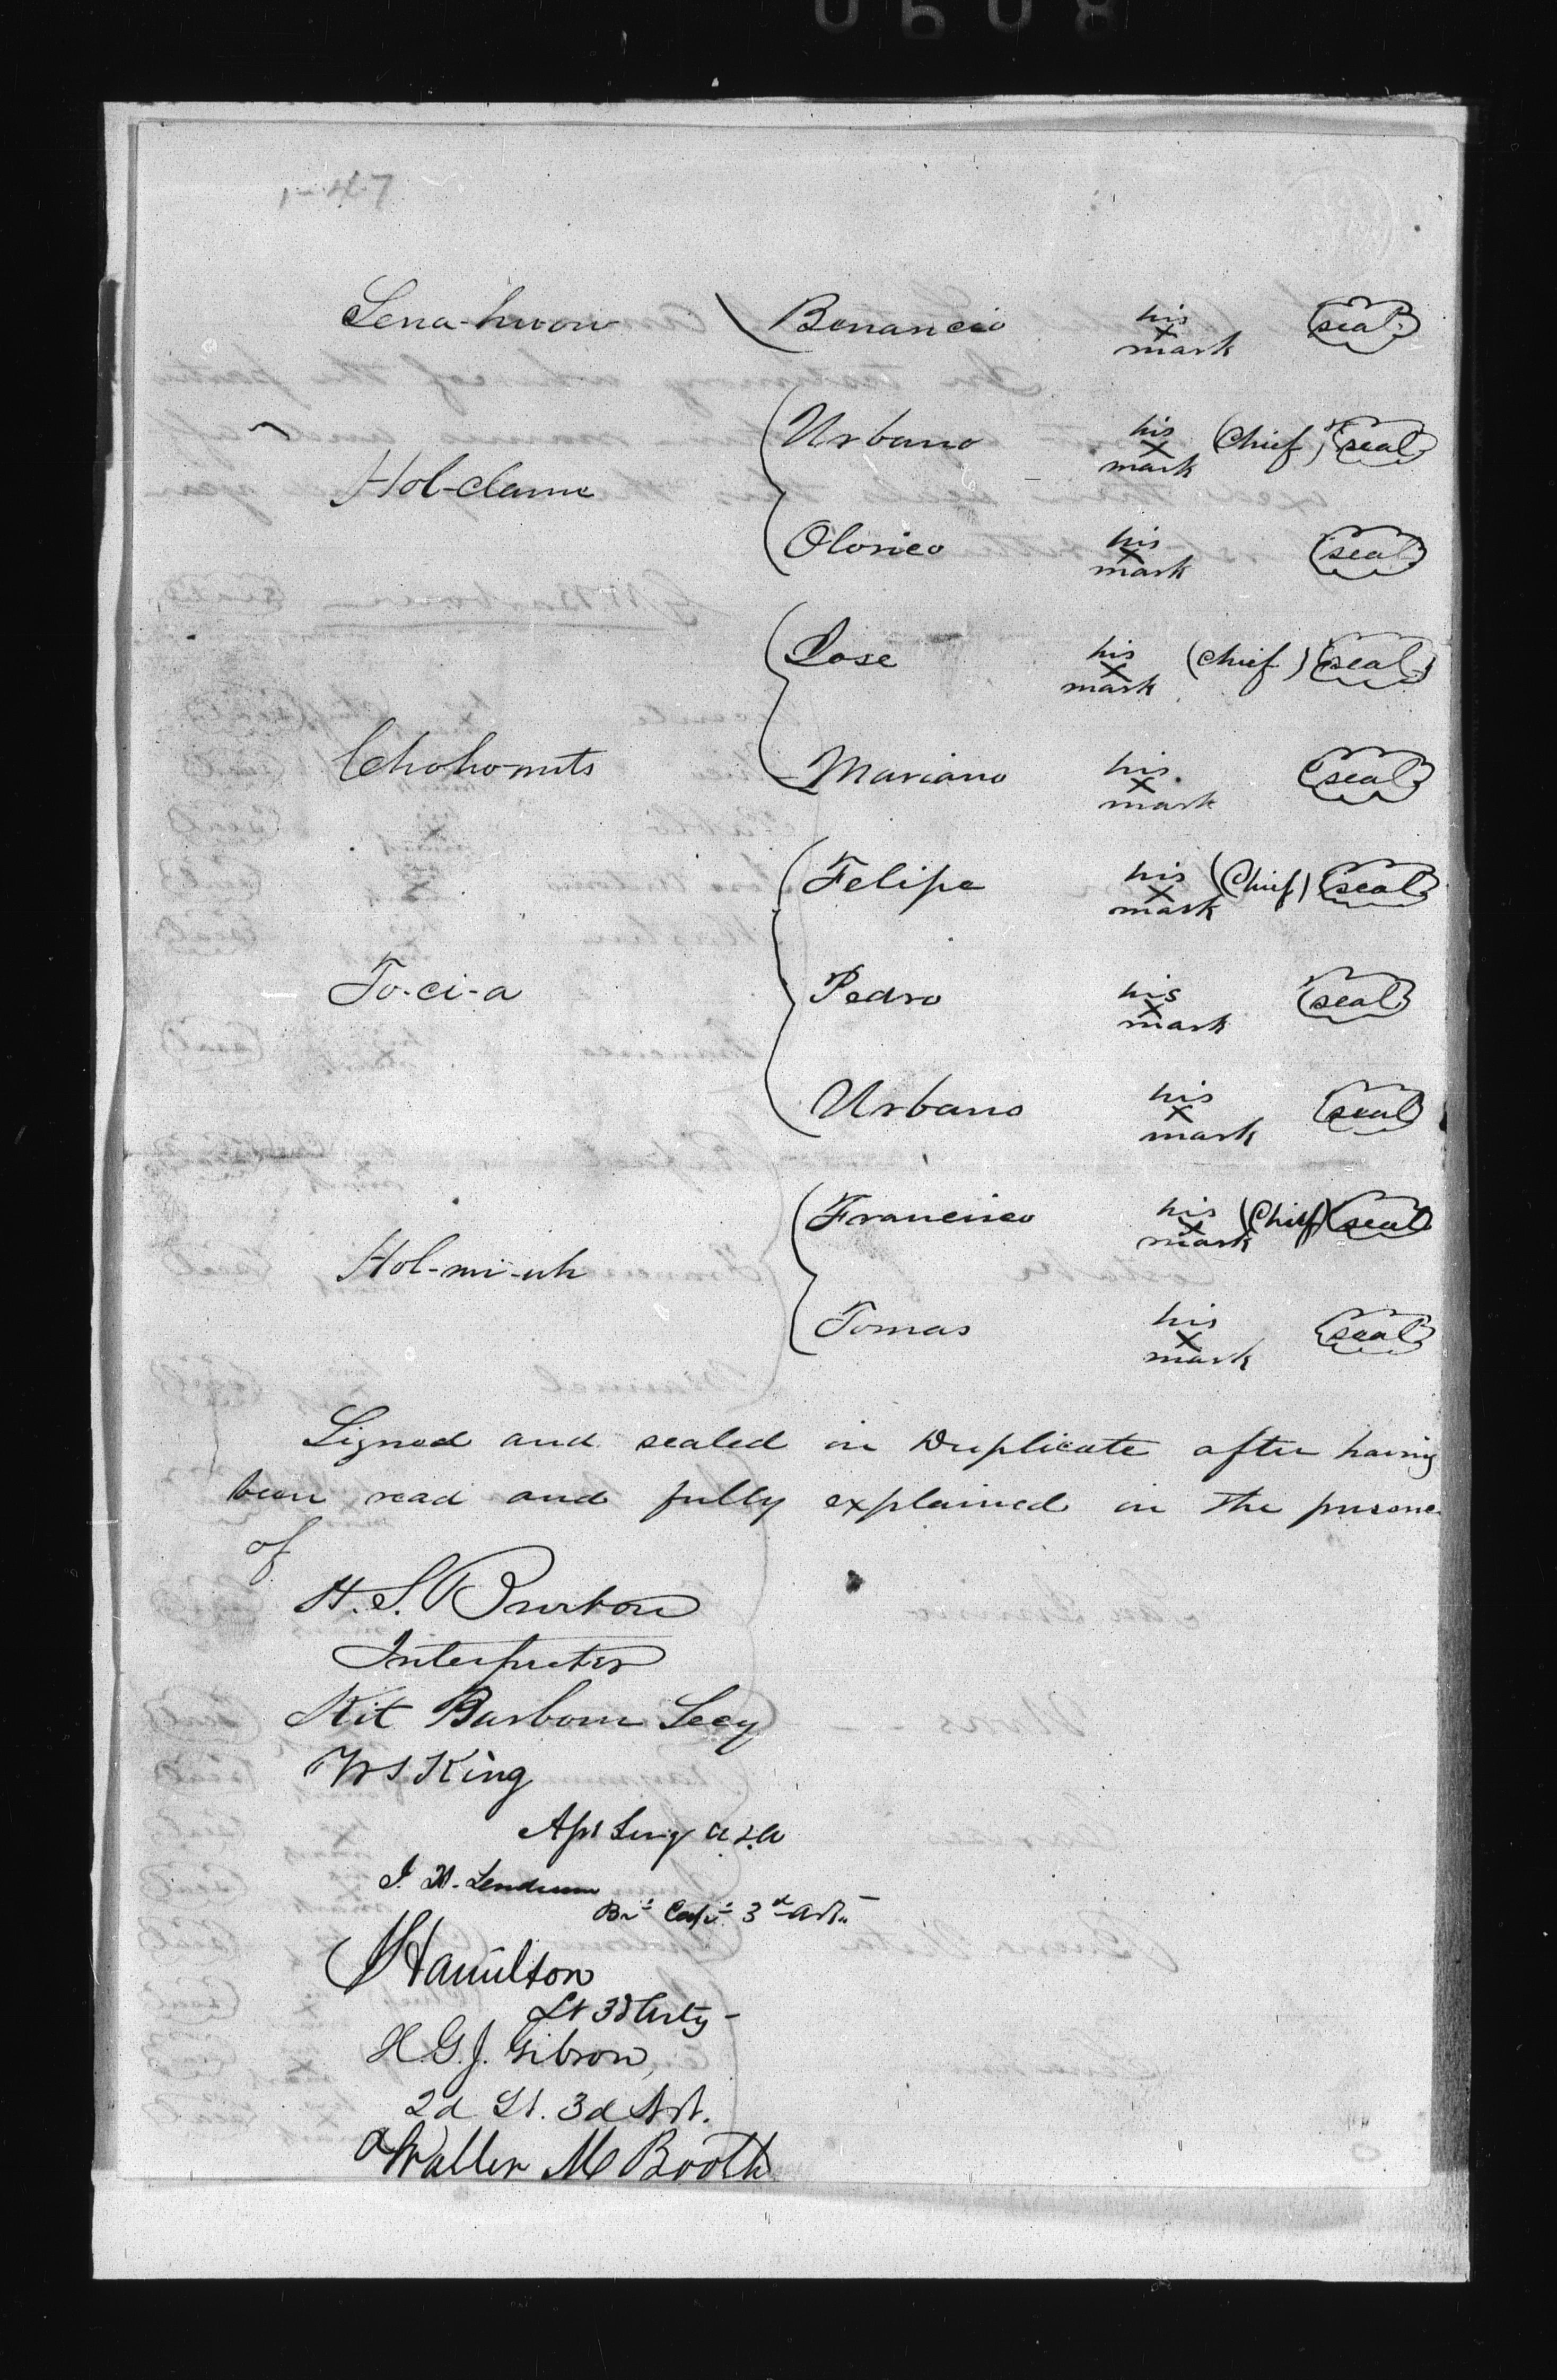 1-47
Sena-hwow Benancio his x mark seal
Hol-clame
Urbano his x mark (Chief) seal
Olorico his x mark seal
Chohonuts
Jose his x mark (Chief) seal
Mariano his x mark seal
To-ci-a
Felipe his x mark (Chief) seal
Pedro his x mark seal
Urbano his x mark seal
Hol-mi-uh
Francisco his x mark (Chief) seal
Tomas his x mark seal
Signed and sealed in Duplicate after having
been read and fully explained in the presence
of
H. S. Burton
Interpreter
Kit Barbour Secy
W S King
Ast Surg U.S.A
J. H. Lendrum
Bvt Capt 3d Art.
J Hamilton
Lt 3d Arty
H. G. J. Gibson,
2d Lt. 3d Art.
Walter M Booth